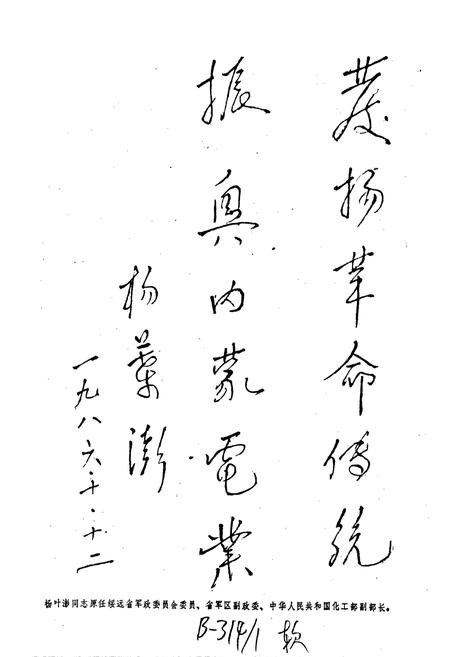 發扬革命传统
振興内蒙電業
杨葉澎
一九八六.十.十二
杨叶澎同志原任绥远省军政委员会委员、省军区副政委、中华人民共和国化工部副部长。
B-314/1 软